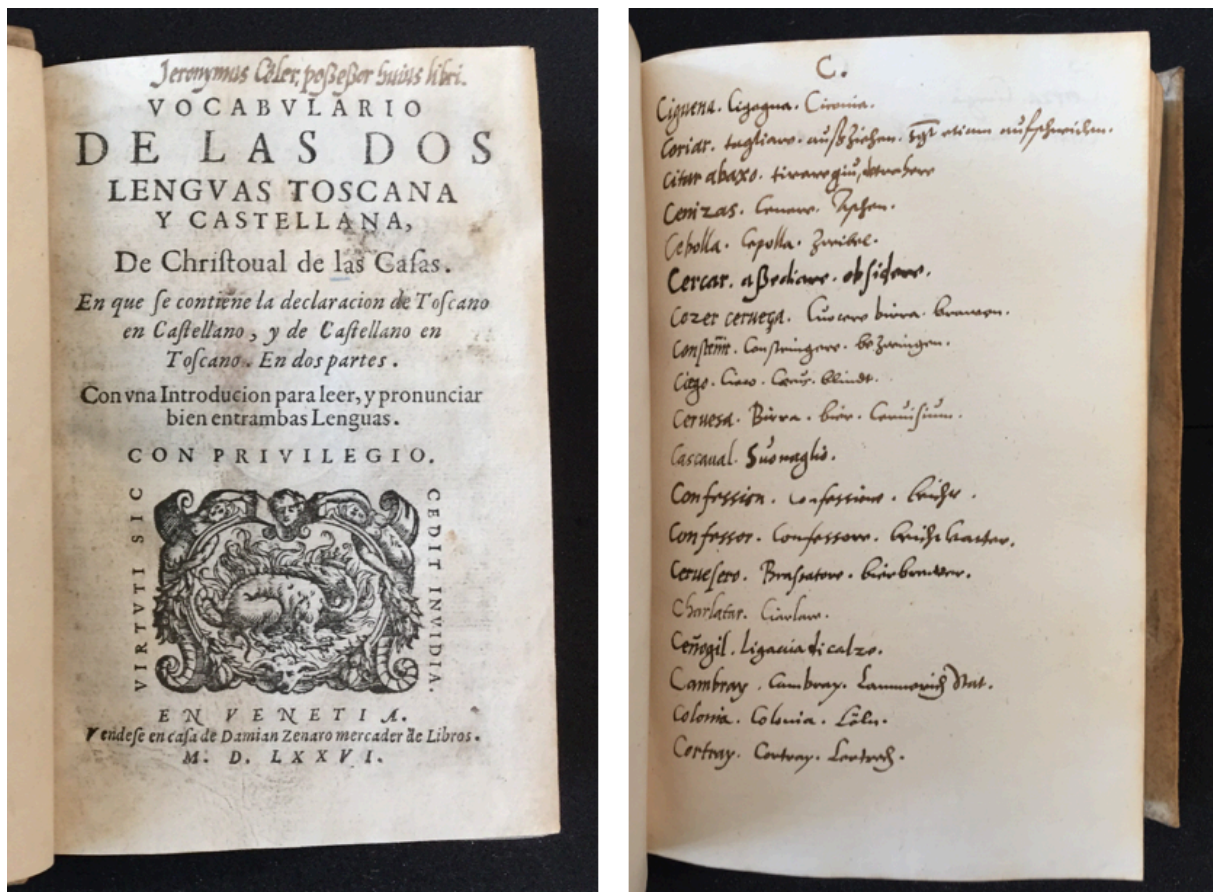 Jeronymus Cöler, poßeßor huius libri.
VOCABVLARIO
DE LAS DOS
LENGVAS TOSCANA
Y CASTELLANA,
De Chriſtoual de las Caſas.
En que ſe contiene la declaracion de Toſcano
en Caſtellano, y de Caſtellano en
Toſcano. En dos partes.
Con vna Introducion para leer, y pronunciar
bien entrambas Lenguas.
CON PRIVILEGIO.
VIRTVTI SIC
CEDIT INVIDIA.
EN VENETIA.
Vendeſe en caſa de Damian Zenaro mercader de Libros.
M. D. LXXVI.
C.
Ciguena. Cigogna. Ciconia.
Coriar. tagliare. etiam aufschneiden.
abaxo. tirare giu, detrahere
Cenizas. Cenere. Aschen.
Cebolla. Cepolla. Zwibel.
Cercar. aßediare. obsidere.
Cozer cerueça. Cuocere birra. brawen.
Constringere. bezwingen.
Ciego. Cieco. Cæcus. blindt.
Ceruesa. Birra. bier. Ceruisium.
Cascaual. Suonaglio.
Confession. Confessione. beicht.
Confessor. Confessore. beichtvatter.
Ceruesero. Braseatore. bierbrawer.
Charlatar. Ciarlare.
Ceñogil. Ligacia di calze.
Cambray. Cambray. Cammerich Stat.
Colonia. Colonia. Cöln.
Cortray. Cortray.